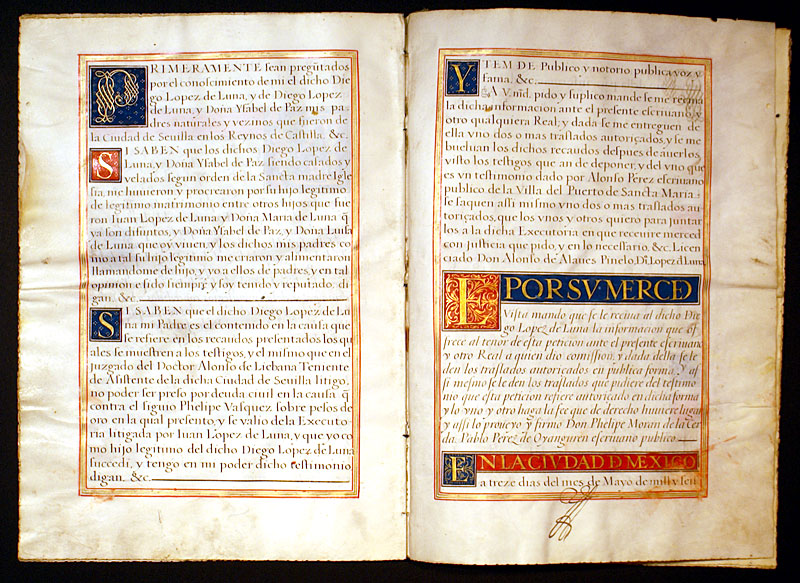 PRIMERAMENTE sean pregũtados
por el conoscimiento de mi el dicho Die
go Lopez de Luna, y de Diego Lopez
de Luna, y Doña Ysabel de Paz mis pa
dres naturales y vezinos que fueron de
la Ciudad de Sevilla en los Reynos de Castilla. &c.
SI SABEN que los dichos Diego Lopez de
Luna, y Doña Ysabel de Paz siendo casados y
velados segun orden de la Sancta madre Igle
sia, me huuieron y procrearon por su hijo legitimo
de legitimo matrimonio entre otros hijos que fue
ron Iuan Lopez de Luna y Doña Maria de Luna q̃
ya son difuntos, y Doña Ysabel de Paz, y Doña Luisa
de Luna que oy viuen, y los dichos mis padres co
mo a tal su hijo legitimo me criaron y alimentaron
llamandome de hijo, y yo a ellos de padres, y en tal
opinion e sido siempre y soy tenido y reputado. di
gan. &c.
SI SABEN que el dicho Diego Lopez de Lu
na mi Padre es el contenido en la causa que
se refiere en los recaudos presentados los qu
ales se muestren a los testigos, y el mismo que en el
Juzgado del Doctor Alonso de Liebana Teniente
de Asistente de la dicha Ciudad de Sevilla litigo,
no poder ser preso por deuda civil en la causa q̃
contra el siguio Phelipe Vasquez sobre pesos de
oro en la qual presento, y se valio de la Executo
ria litigada por Iuan Lopez de Luna, y que yo co
mo hijo legitimo del dicho Diego Lopez de Luna
succedi, y tengo en mi poder dicho testimonio
digan. &c.
YTEM DE Publico y notorio publica voz y
fama. &c.
A V. md. pido y suplico mande se me reciua
la dicha informacion ante el presente escriuano, y
otro qualquiera Real, y dada se me entreguen de
ella vno dos o mas traslados autorizados, y se me
bueluan los dichos recaudos despues de auerlos
visto los testigos que an de deponer, y del vno que
es vn testimonio dado por Alonso Perez escriuano
publico de la Villa del Puerto de Sancta Maria
se saquen assi mismo vno dos o mas traslados au
toriçados, que los vnos y otros quiero para juntar
los a la dicha Executoria en que receuire merced
con justicia que pido, y en lo necessario. &c. Licen
ciado Don Alonso de Alanes Pinelo, D. Lopez d Luna
E POR SV MERCED
Vista mando que se le reciua al dicho Die
go Lopez de Luna la informacion que of
frece al tenor de esta peticion ante el presente escriuano
y otro Real a quien dio comission, y dada della se le
den los traslados autoricados en publica forma. Y as
si mesmo se le den los traslados que pidiere del testimo
nio que esta peticion refiere autoricado en dicha forma
y lo vno y otro haga la fee que de derecho huuiere lugar
y assi lo proveyo y firmo Don Phelipe Moran de la Cer
da. Pablo Perez de Oyanguren escriuano publico
EN LA CIVDAD D MEXICO
a treze dias del mes de Mayo de mill y seis